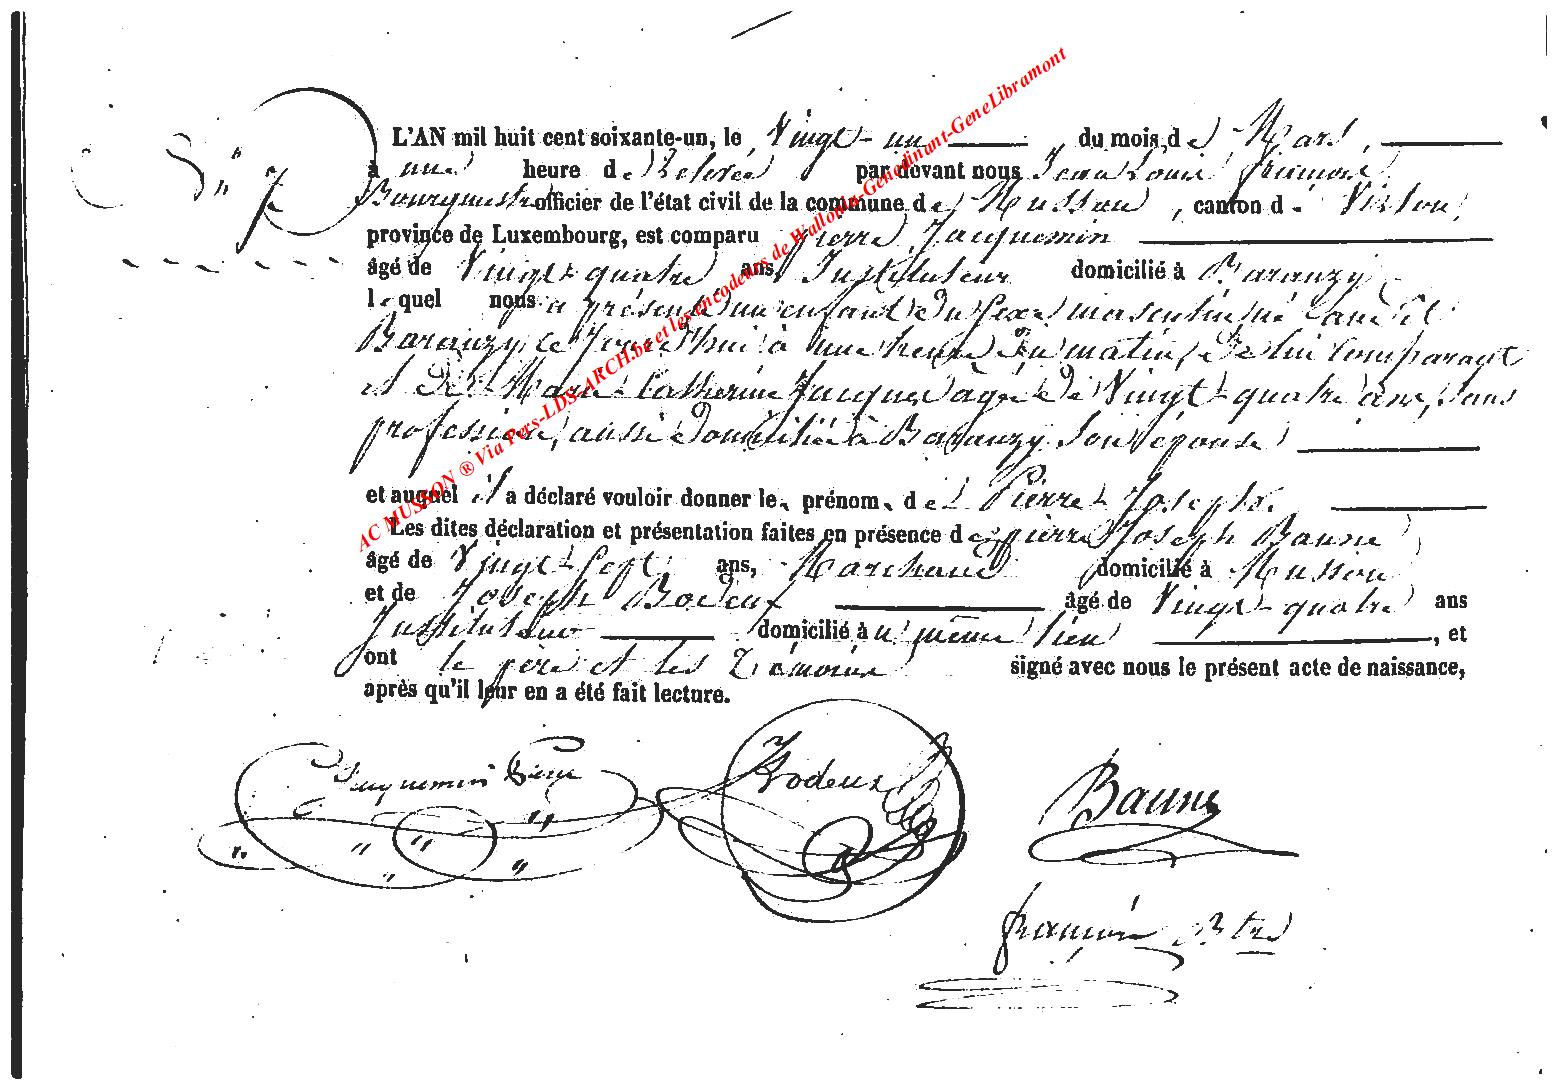 N° 7
L'AN mil huit cent soixante-un, le Vingt-un du mois de Mars
à une heure de Relevée par devant nous Jean Louis
Bourgmestre officier de l'état civil de la commune de Musson, canton de Virton,
province de Luxembourg, est comparu Pierre Jacquemin
âgé de Vingt-quatre ans, Instituteur domicilié à Baranzy
lequel nous a présenté un enfant du sexe masculin, né audit
Baranzy ce jourd'hui à une heure du matin, de lui comparant
et de Marie Catherine Jacques âgée de Vingt-quatre ans, sans
profession, aussi domiciliée à Baranzy son épouse
et auquel il a déclaré vouloir donner les prénoms de Pierre Joseph.
Les dites déclaration et présentation faites en présence de pierre Joseph Baune
âgé de Vingt Sept ans, Marchand domicilié à Musson
et de Joseph Bodeux âgé de Vingt-quatre ans
Instituteur domicilié à u même lieu, et
ont le père et les témoins signé avec nous le présent acte de naissance,
après qu'il leur en a été fait lecture.
Jacquemin Pierre Bodeux Baune
Btre
AC MUSSON ® Via Pers-LDS-ARCH.be et les encodeurs de Wallonin-Genedinant-GeneLibramont